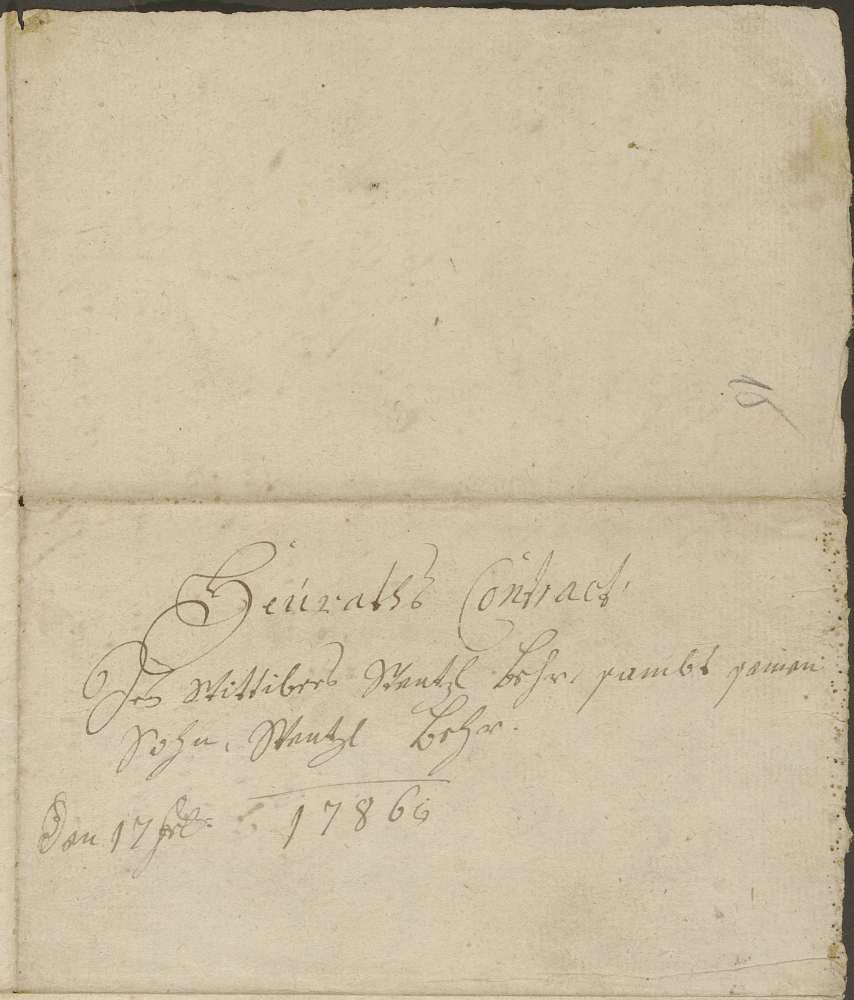 Heüraths Contract
Des Wittibers Wentzl Behr, sambt seinen
Sohn, Wentzl Behr.
Den 17 1786